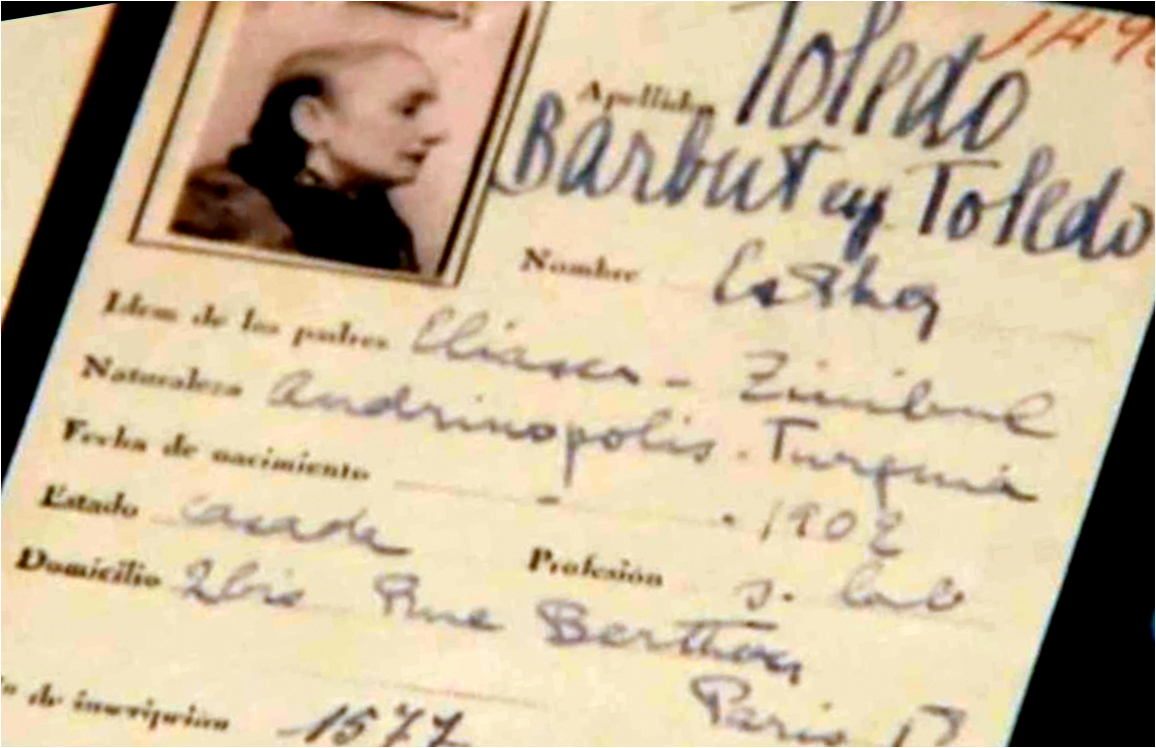 149
Apellidos Toledo
Barbut y Toledo
Nombre Esther
Idem de los padres Eliaser - Zimbul
Naturaleza Andrinopolis. Turquia
Fecha de nacimiento - . 1902
Estado casada Profesión s. lab
Domicilio 2bis Rue Berthou
Paris
de inscripción 1577